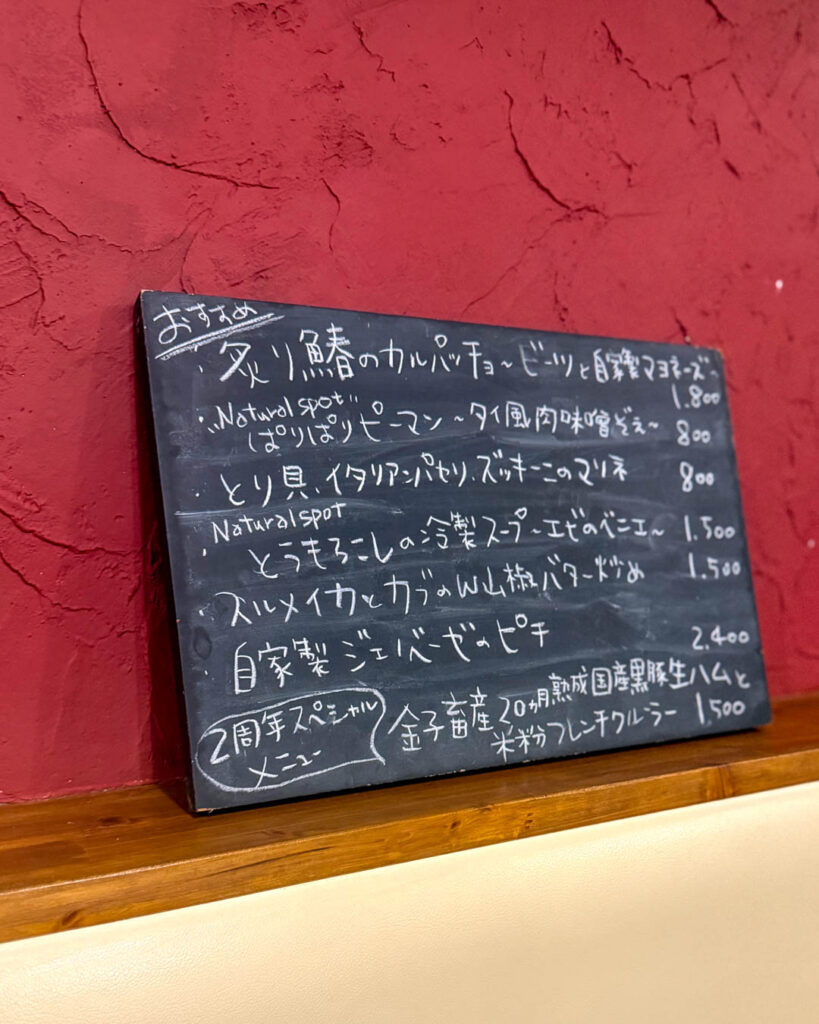 おすすめ
・炙り鰆のカルパッチョ～ビーツと自家製マヨネーズ～
1.800
・"Natural spot"
ぱりぱりピーマン～タイ風肉味噌ぞえ～ 800
・とり貝、イタリアンパセリ、ズッキーニのマリネ 800
Natural spot
・とうもろこしの冷製スープ～エビのベニエ～ 1.500
・スルメイカとカブのW山椒バター炒め 1.500
・自家製ジェノベーゼのピチ 2.400
2周年スペシャル
メニュー
金子畜産20ヵ月熟成国産黒豚生ハムと
米粉フレンチクルーラー 1.500